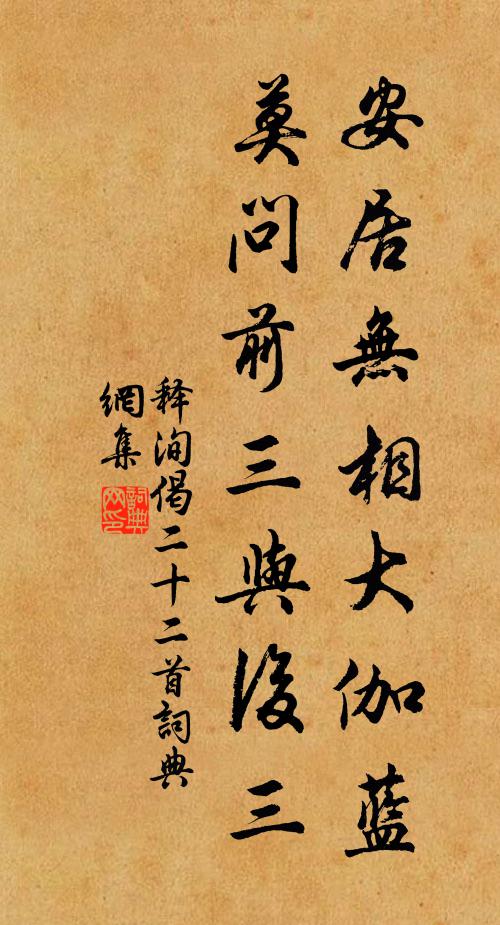 安居無相大伽藍
莫問前三與後三
釋洵偈二十二首詞典
網集
詞典網印